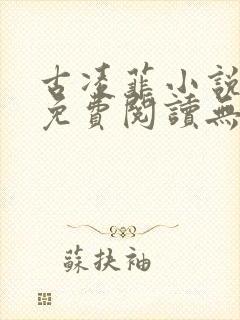 古凌蓝小說
免費閱讀無
蘇扶袖